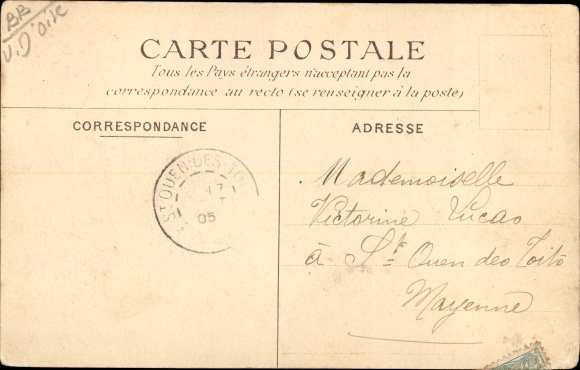 BB
V. D'oise
CARTE POSTALE
Tous les Pays étrangers n'acceptant pas la
correspondance au recto (se renseigner à la poste)
CORRESPONDANCE
ADRESSE
ST OUEN-DES-TOI
05
Mademoiselle
Victorine Lucas
à St Ouen des Toits
Mayenne